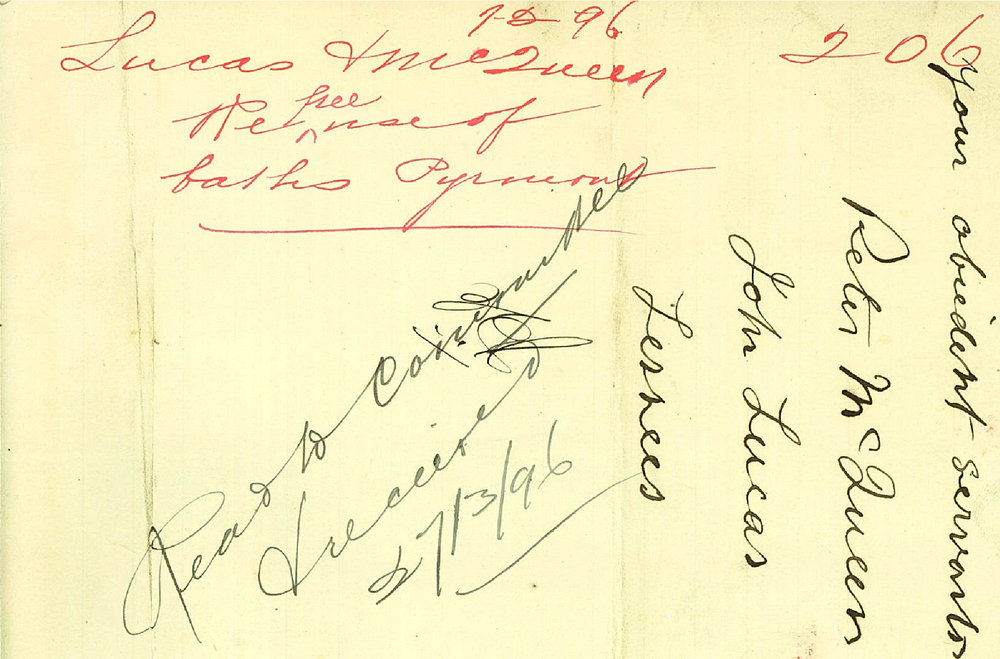 1-2-96
206
Lucas & McQueen
Re free use of
baths Pyrmont
Read to Committee
& received
27/3/96
your obiedent servants
Peter McQueen
John Lucas
Lessees